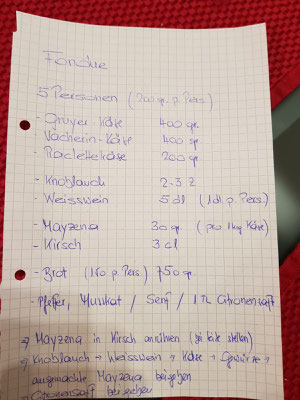 Fondue
5 Personen (200 gr. p. Pers.)
- Gruyer Käse 400 gr.
- Vacherin-Käse 400 gr.
- Raclettekäse 200 gr.
- Knoblauch 2-3 Z
- Weisswein 5 dl (1 dl p. Pers.)
- Mayzena 30 gr. (pro 1 kg Käse)
- Kirsch 3 cl
- Brot (150 p. Pers.) 750 gr.
- Pfeffer, Muskat / Senf / 1 TL Citronensaft
→ Mayzena in Kirsch anrühren (zur Seite stellen)
→ Knoblauch → Weisswein → Käse → Gewürze →
angemachte Mayzena beigeben
→ Citronensaft beigeben